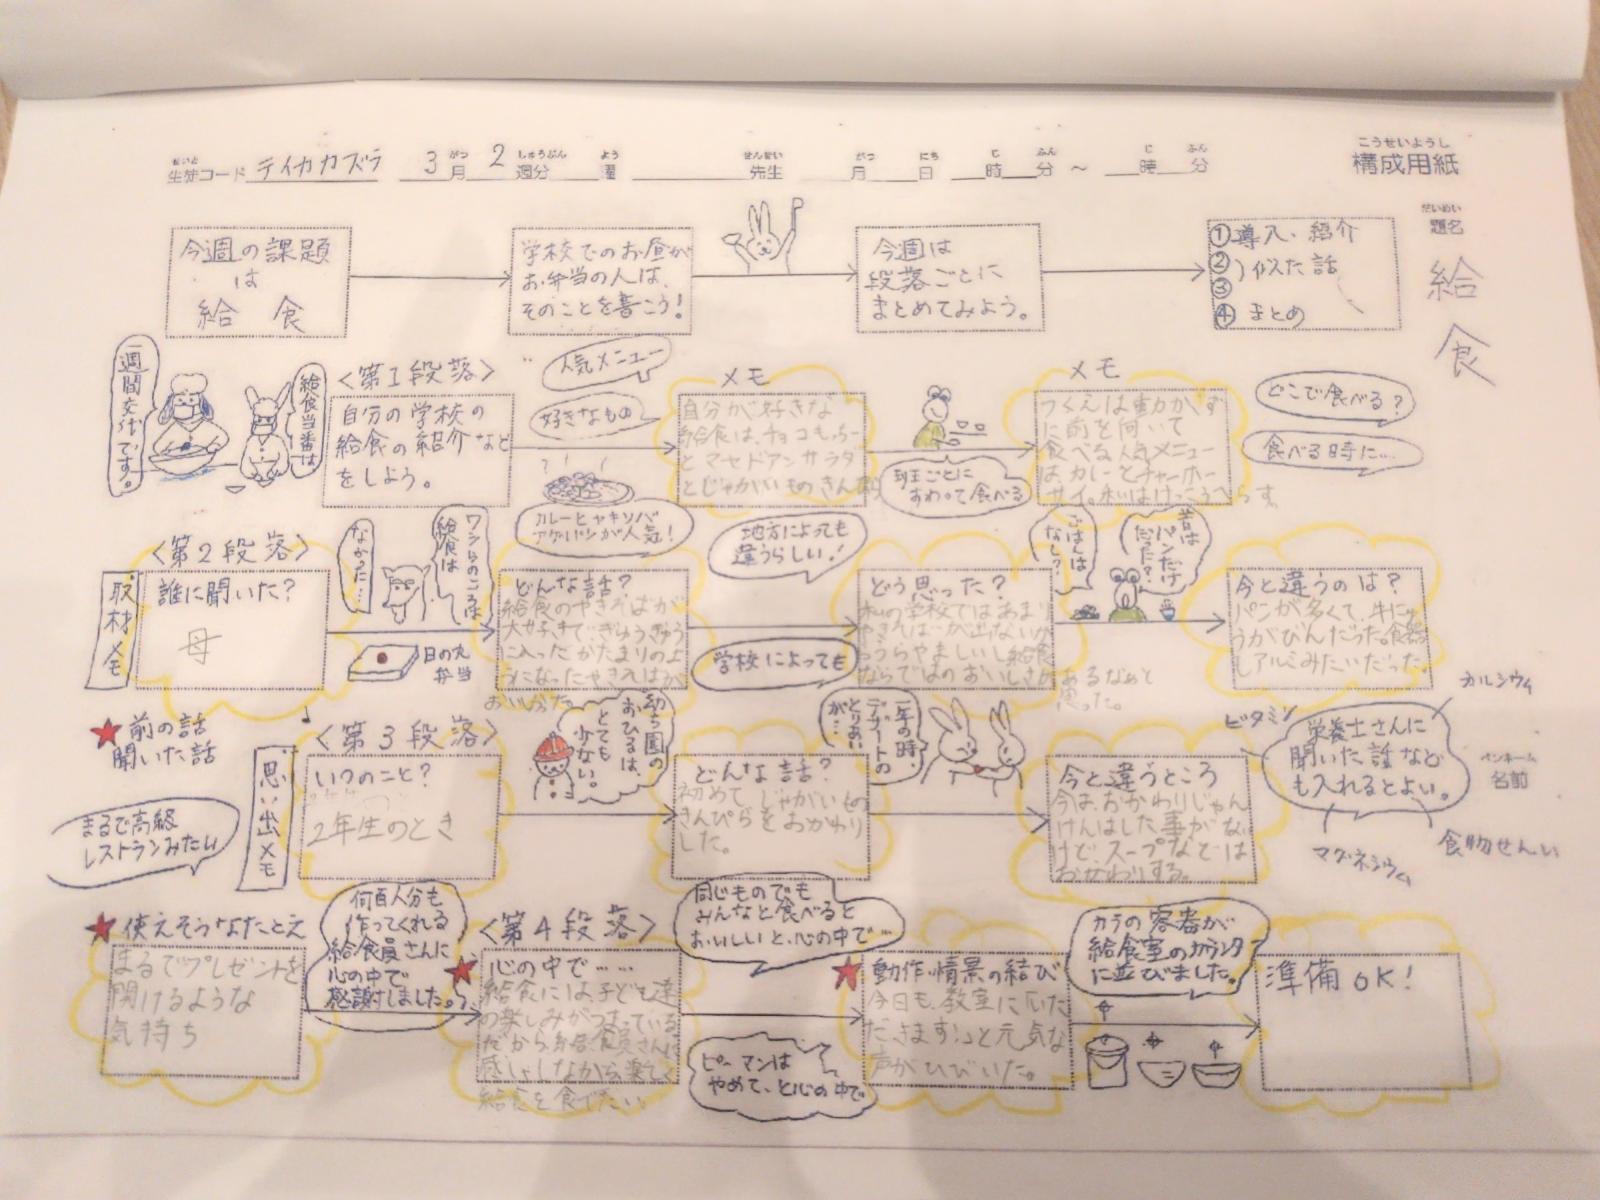 せいと
生徒コード テイカカズラ 3月 2週分 曜 先生 月 日 時 分 ～ 時 分
がつ しゅうぶん よう せんせい がつ にち じ ふん じ ふん
こうせいようし
構成用紙
だいめい
題名
給食
今週の課題
は
給 食
学校でのお昼が
お弁当の人は、
そのことを書こう！
今週は
段落ごとに
まとめてみよう。
①導入・紹介
②
③ 似た話
④まとめ
一週間交代です。
給食当番は
〈第1段落〉
自分の学校の
給食の紹介など
をしよう。
人気メニュー
好きなもの
カレーとヤキソバ
アゲパンが人気！
メモ
自分が好きな
給食は、チョコもっちー
とマセドアンサラダ
とじゃがいものきんぴら
班ごとに
すわって食べる
メモ
つくえは動かさず
に前を向いて
食べる。人気メニュー
は、カレーとチャーホー
サイ。私はけっこうへらす。
どこで食べる？
食べる時に…
〈第2段落〉
取材メモ
誰に聞いた？
母
ワシらのころは
給食は
なかった…
日の丸
弁当
どんな話？
給食のやきそばが
大好きで、ぎゅうぎゅう
に入ったかたまりのよ
うになったやきそばが
おいしかった。
地方によっても
違うらしい！
学校によっても
どう思った？
私の学校ではあまり
やきそばが出ないか
らうらやましいし給食
ならではのおいしさが
あるなあと
思った。
昔は
パンだけ
だった？
ごはんは
なし？
今と違うのは？
パンが多くて、牛にゅ
うがびんだった。食器
もアルミみたいだった。
★前の話
聞いた話
〈第3段落〉
思い出メモ
いつのこと？
2年生のとき
幼ち園の
おひるは、
とても
少ない。
どんな話？
初めてじゃがいもの
きんぴらをおかわり
した。
一年の時、
デザートの
とりあい
が…
今と違うところ
今は、おかわりじゃん
けんはした事がない
けど、スープなどは
おかわりする。
栄養士さんに
聞いた話など
も入れるとよい。
カルシウム
ビタミン
マグネシウム
食物せんい
ペンネーム
名前
まるで高級
レストランみたい
★使えそうなたとえ
まるでプレゼントを
開けるような
気持ち
何百人分も
作ってくれる
給食員さんに
心の中で
感謝しました。
〈第4段落〉
★心の中で……
給食には、子ども達
の楽しみがつまっている
だから、給食員さんに
感しゃしながら、楽しく
給食を食べたい。
同じものでも
みんなと食べると
おいしいと、心の中で…
ピーマンは
やめて、と心の中で
★動作・情景の結び
今日も、教室に「いた
だきます！」と元気な
声がひびいた。
カラの容器が
給食室のカウンタ
に並びました。
準備OK！